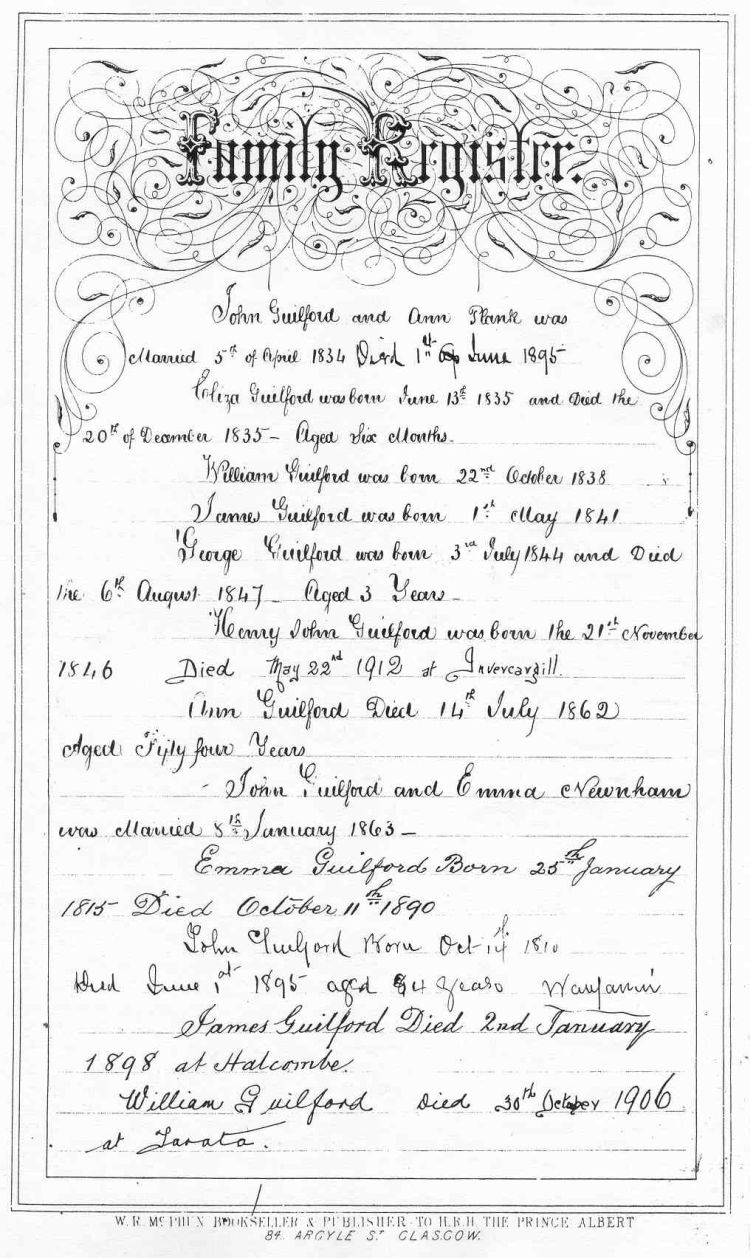 Family Register.
John Guilford and Ann Plank was
Married 5th of April 1834 Died 1st June 1895
Eliza Guilford was born June 13th 1835 and Died the
20th of December 1835 - Aged Six Months.
William Guilford was born 22nd October 1838
James Guilford was born 1st May 1841
George Guilford was born 3rd July 1844 and Died
the 6th August 1847 - Aged 3 Years -
Henry John Guilford was born the 21st November
1846 Died May 22nd 1912 at Invercargill.
Ann Guilford Died 14th July 1862
Aged Fifty four Years
John Guilford and Emma Newnham
was Married 8th January 1863 -
Emma Guilford Born 25th January
1815 Died October 11th 1890
John Guilford Born Oct 14th 1810
Died June 1st 1895 aged 84 years
James Guilford Died 2nd January
1898 at Halcombe.
William Guilford Died 30th October 1906
at Tarata.
W. R. McPHUN BOOKSELLER & PUBLISHER TO H.R.H THE PRINCE ALBERT
84. ARGYLE ST GLASGOW.